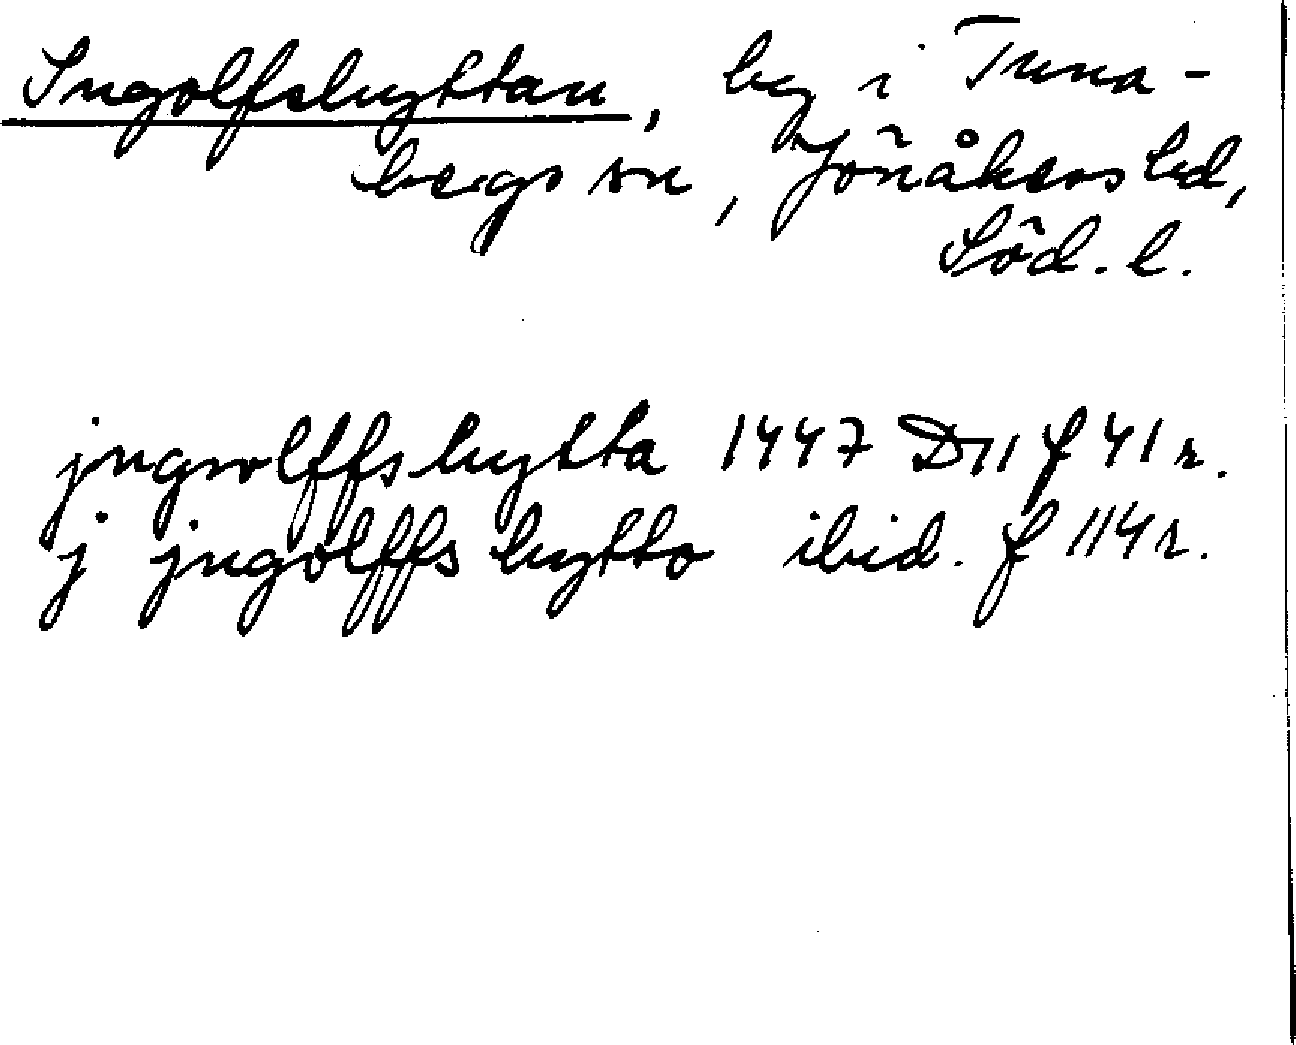 Ingolfshyttan, by i Tuna-
bergs sn, Jönåkers hd,
Söd. l.
jngolffshytta 1447 D11 f 41 r.
j jngolffs hytto ibid. f 114 r.